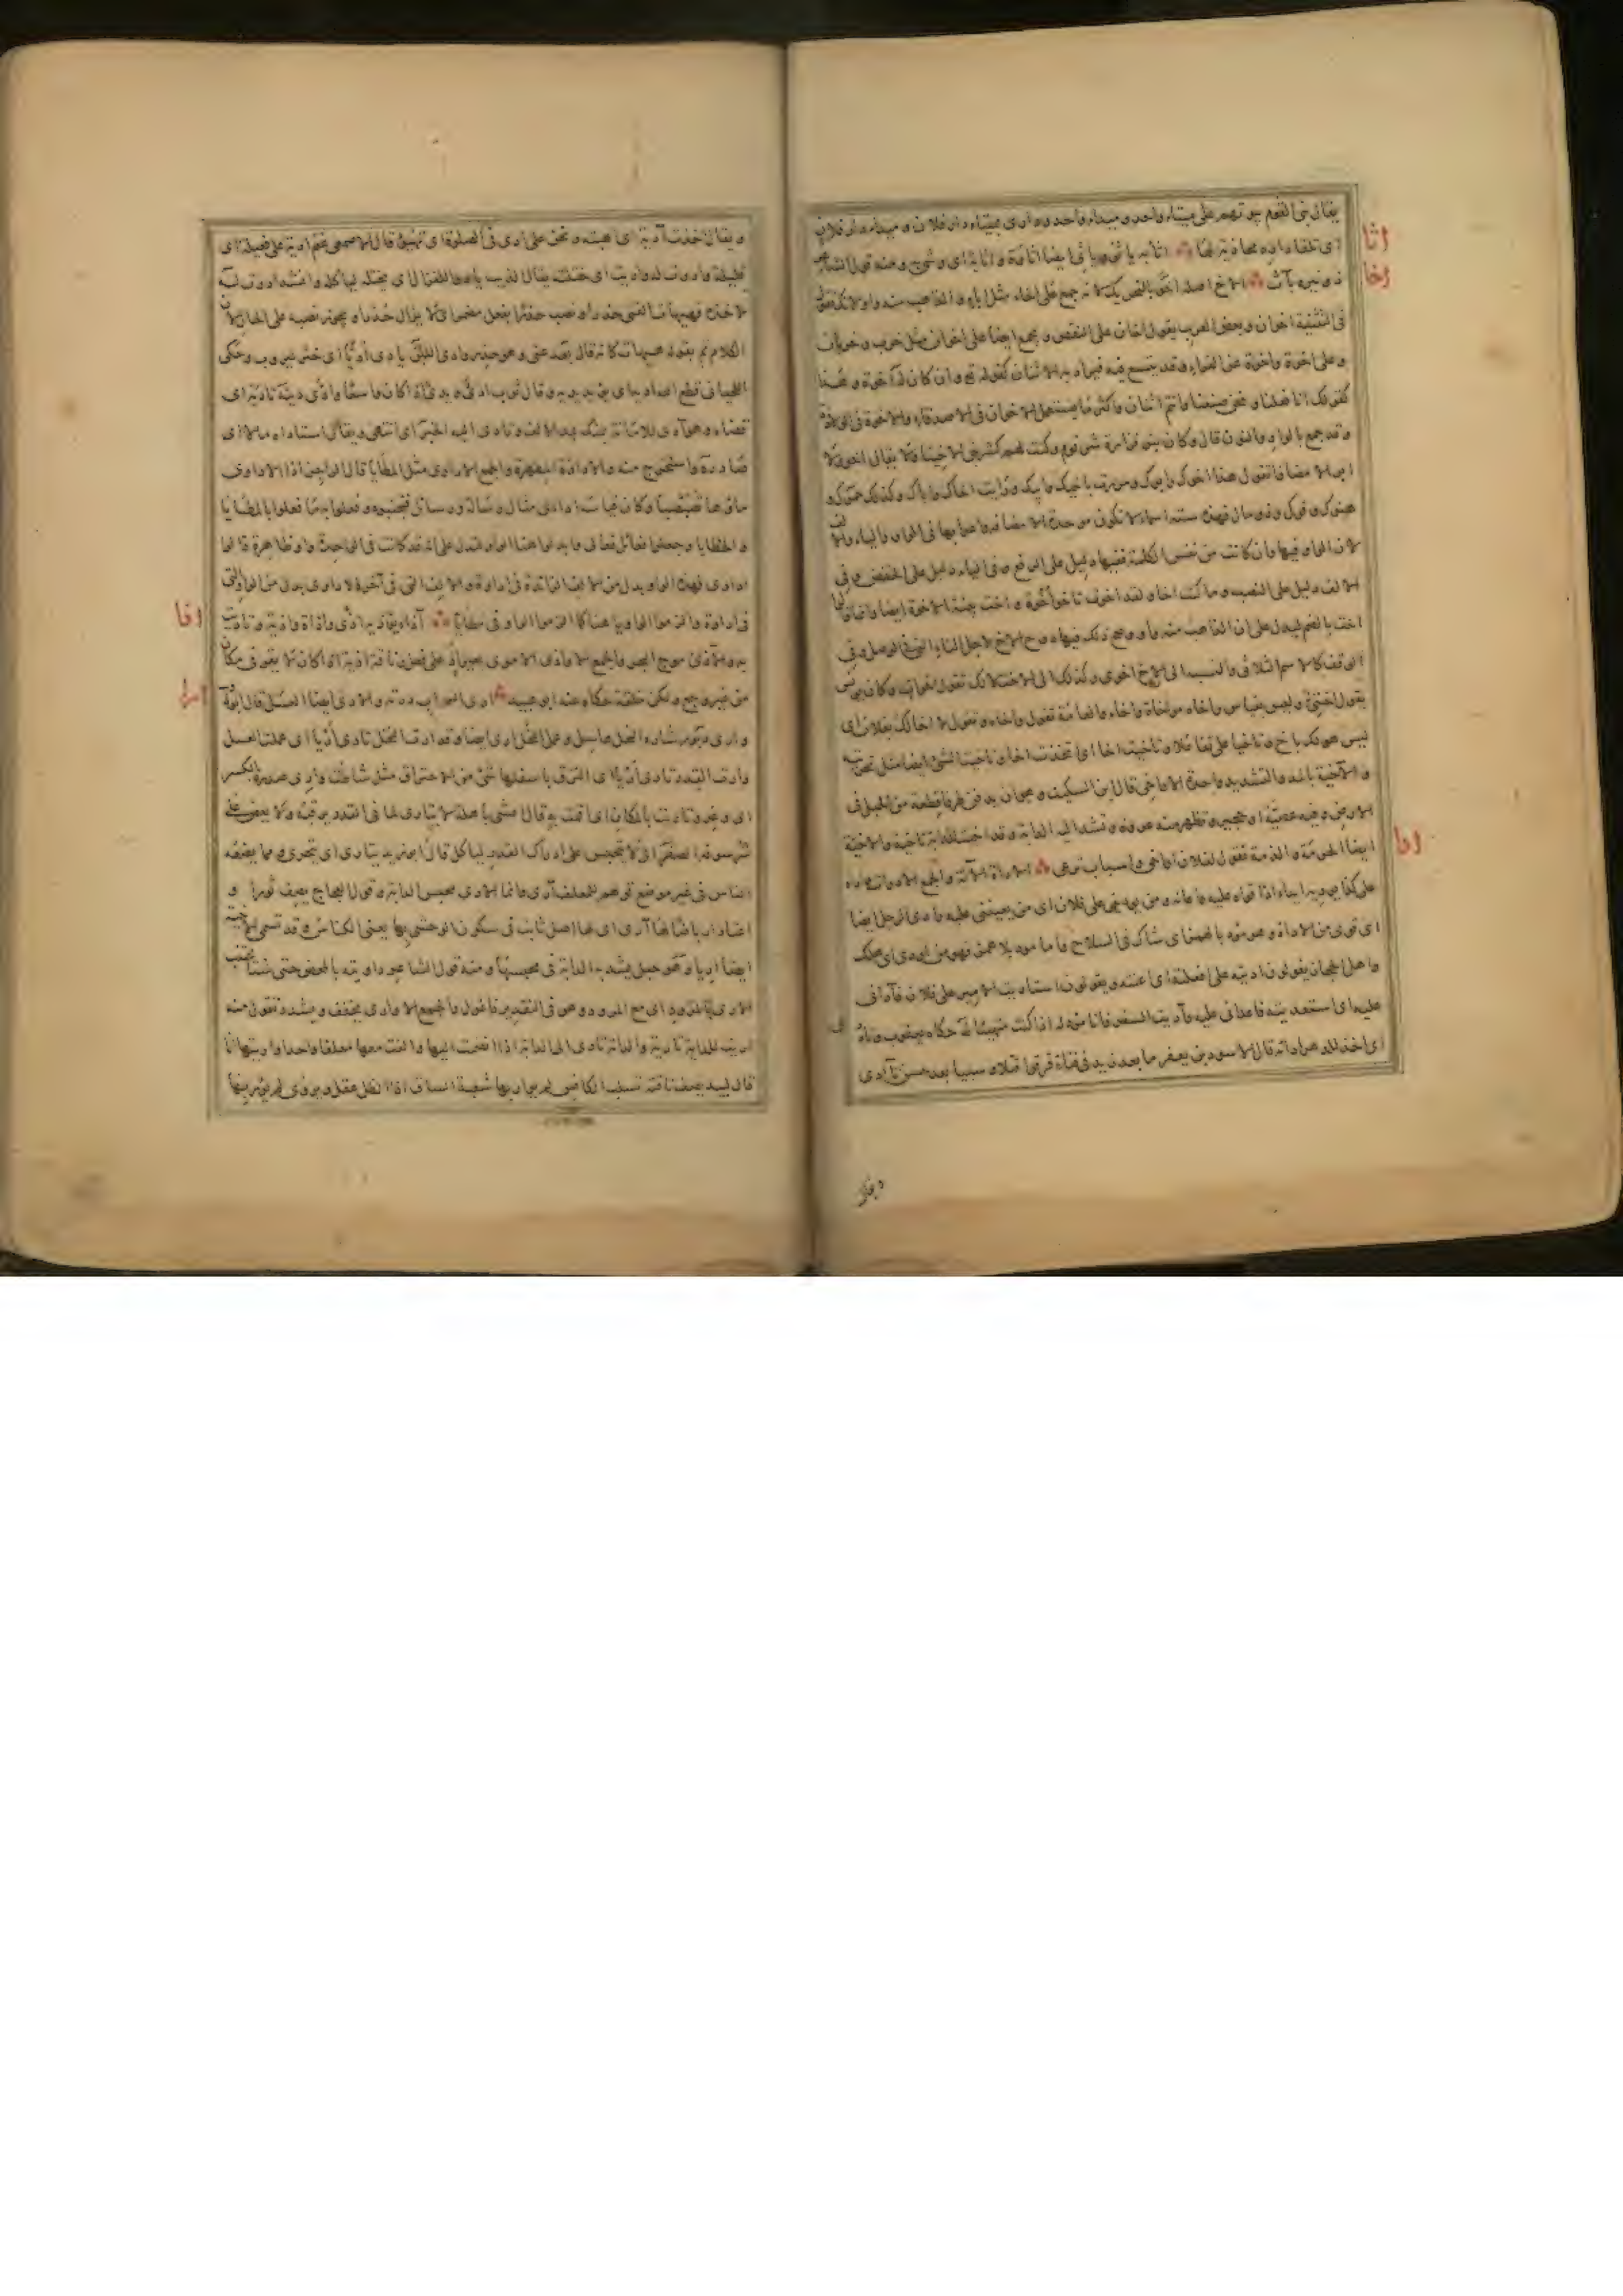 يقال بنى القوم بيوتهم على ميتاء واحد وميداء واحد ودارى بميتاء دار فلان وميداء دار فلان
اى تلقاء داره محاذية لها اثا به ياثو وياثى ايضا اثاوة واثاية اى وشى به ومنه قول الشاعر
ذو نيرب آث الاخ اصله اخو بالتحريك لانه جمع على اخاء مثل اباء والذاهب منه واو لانك تقول
فى التثنية اخوان وبعض العرب يقول اخان على النقص ويجمع ايضا على اخوان مثل خرب وخربان
وعلى اخوة واخوة عن الفراء وقد يتسع فيه فيراد به الاثنان كقوله تع وان كان له اخوة وهذا
كقولك انا فعلنا ونحن صنعنا وانتم اثنان واكثر ما يستعمل الاخوان فى الاصدقاء والاخوة فى الولادة
وقد جمع بالواو والنون قال وكان بنو فزارة شر قوم وكنت لهم كشر بنى الاخينا ولا يقال اخو ولا
ابو الا مضافا تقول هذا اخوك وابوك ومررت باخيك وابيك ورايت اخاك واباك وكذلك حموك و
هنوك وفوك وذو مال فهذه ستة اسماء لا تكون موحدة الا مضافة واعرابها فى الواو والياء والالف
لان الواو فيها وان كانت من نفس الكلمة ففيها دليل على الرفع وفى الياء دليل على الخفض وفى
الالف دليل على النصب وما كنت اخا ولقد اخوت تاخو اخوة و اخت بينة الاخوة ايضا وانما قالوا
اخت بالضم ليدل على ان الذاهب منه واو وصح ذلك فيها دون الاخ لاجل التاء التى فى الوصل وفى
الوقف كالاسم الثلاثى والنسب الى الاخ اخوى وكذلك الى الاخت لانك تقول اخوات وكان يونس
يقول اختى وليس بقياس واخاه مواخاة واخاء والعامة تقول واخاه وتقول لا اخا لك بفلان اى
ليس هو لك باخ وتاخيا على تفاعلا وتاخيت اخا اى اتخذت اخا وتاخيت الشئ ايضا مثل تحريته
والآخية بالمد والتشديد واحدة الاواخى قال ابن السكيت وهو ان يدفن طرفا قطعة من الحبل فى
الارض وفيه عصية او حجير وتظهر منه عروة وتشد اليه الدابة وقد اخيت للدابة تاخية والاخية
ايضا الحرمة والذمة تقول لفلان اواخى واسباب ترعى الاداة الآلة والجمع الادوات وآداه
على كذا يوديه ايداء اذا قواه عليه واعانه ومن يودينى على فلان اى من يعيننى عليه وآدى الرجل ايضا
اى قوى من الاداة وهو مود بالهمز اى شاك فى السلاح واما مود بلا همز فهو من اودى اى هلك
واهل الحجاز يقولون اديته على افعلته اى اعنته ويقولون استاديت الامير على فلان فآدانى
عليه اى استعديته فاعدانى عليه وآديت السفر فانا مود له اذا كنت متهيئا له حكاه يعقوب وتآد
اى اخذ للدهر اداته قال الاسود بن يعفر ما بعد زيد فى فتاة فرقوا قتلا وسبيا بعد حسن تآدى
اثا
اخا
ادا
ويقال
ويقال اخذت آدية اى اهبته ونحن على ادى فى الصلوة اى تهيئ قال الاصمعى غنم ادية على فعيلة اى
قليلة وادوت له واديت اى ختلت يقال الذيب يادو للغزال اى يختله لياكله وانشد ادوت له
لآخذه فهيهات الفتى حذرا ونصب حذرا بفعل مضمر اى لا يزال حذرا ويجوز نصبه على الحال لان
الكلام تم بقوله هيهات كانه قال بعد عنى وهو حذر وادى اللبن يادى اديا اى خثر ليروب وحكى
اللحيانى قطع الله اديه اى يديه وقال ثوب ادى ويدى اذا كان واسعا وادى دينه تادية اى
قضاه وهو آدى للامانة منك بمد الالف وتادى اليه الخبر اى انتهى ويقال استاداه مالا اذى
صادره واستخرج منه والاداوة المطهرة والجمع الاداوى مثل المطايا قال الراجز اذا الاداوى
ماؤها تصبصبا وكان قياسه ادائى مثل رسالة ورسائل فتجنبوه وفعلوا به ما فعلوا بالمطايا
والخطايا وجعلوا فعائل فعالى وابدلوا هنا الواو لتدل على انه قد كانت فى الواحدة واو ظاهرة فقالوا
اداوى فهذه الواو بدل من الالف الزائدة فى اداوة والالف التى فى آخره لاداوى بدل من الواو التى
فى اداوة والزموا الواو ها هنا كما الزموا الياء فى مطايا آذاه يؤذيه اذى واذاة واذية وتاذيت
به والآذى موج البحر والجمع الاواذى الاموى بعير اذ على فعل وناقة اذية اذا كان لا يقر فى مكان
من غير وجع ولكن خلقة حكاه عنه ابو عبيد ارى السحاب درته والارى ايضا العسل قال لبيد
وارى دبور شاره النحل عاسل وعمل النحل ارى ايضا وقد ارت النحل تارى اريا اى عملت العسل
وارت القدر تارى اريا اى التزق باسفلها شئ من الاحتراق مثل شاطت وارى صدره بالكسر
اى وغر وتاريت بالمكان اى اقمت به قال اعشى باهلة لا يتارى لما فى القدر يرقبه ولا يعض على
شرسوفه الصفر اى لا يتحبس على ادراك القدر لياكل قال ابو زيد يتارى اى يتحرى ومما يضعه
الناس فى غير موضع قولهم للمعلف آرى وانما الارى محبس الدابة وقول العجاج يصف ثورا و
اعتاد ارباضا لها آرى اى لها اصل ثابت فى سكون الوحش بها يعنى الكناس وقد تسمى الاخية
ايضا اريا وهو حبل يشد به الدابة فى محبسها ومنه قول الشاعر داويته بالمحض حتى شتا يجتذب
الارى بالمرود اى مع المرود وهو فى التقدير فاعول والجمع الاوارى يخفف ويشدد تقول منه
اريت للدابة تارية والدابة تارى الى الدابة اذا انضمت اليها والفت معها معلفا واحدا واريتها انا
قال لبيد يصف ناقته تسلب الكانس لم يوار بها شعبة الساق اذا الظل عقل ويروى لم يؤر بها
اذا
ارا